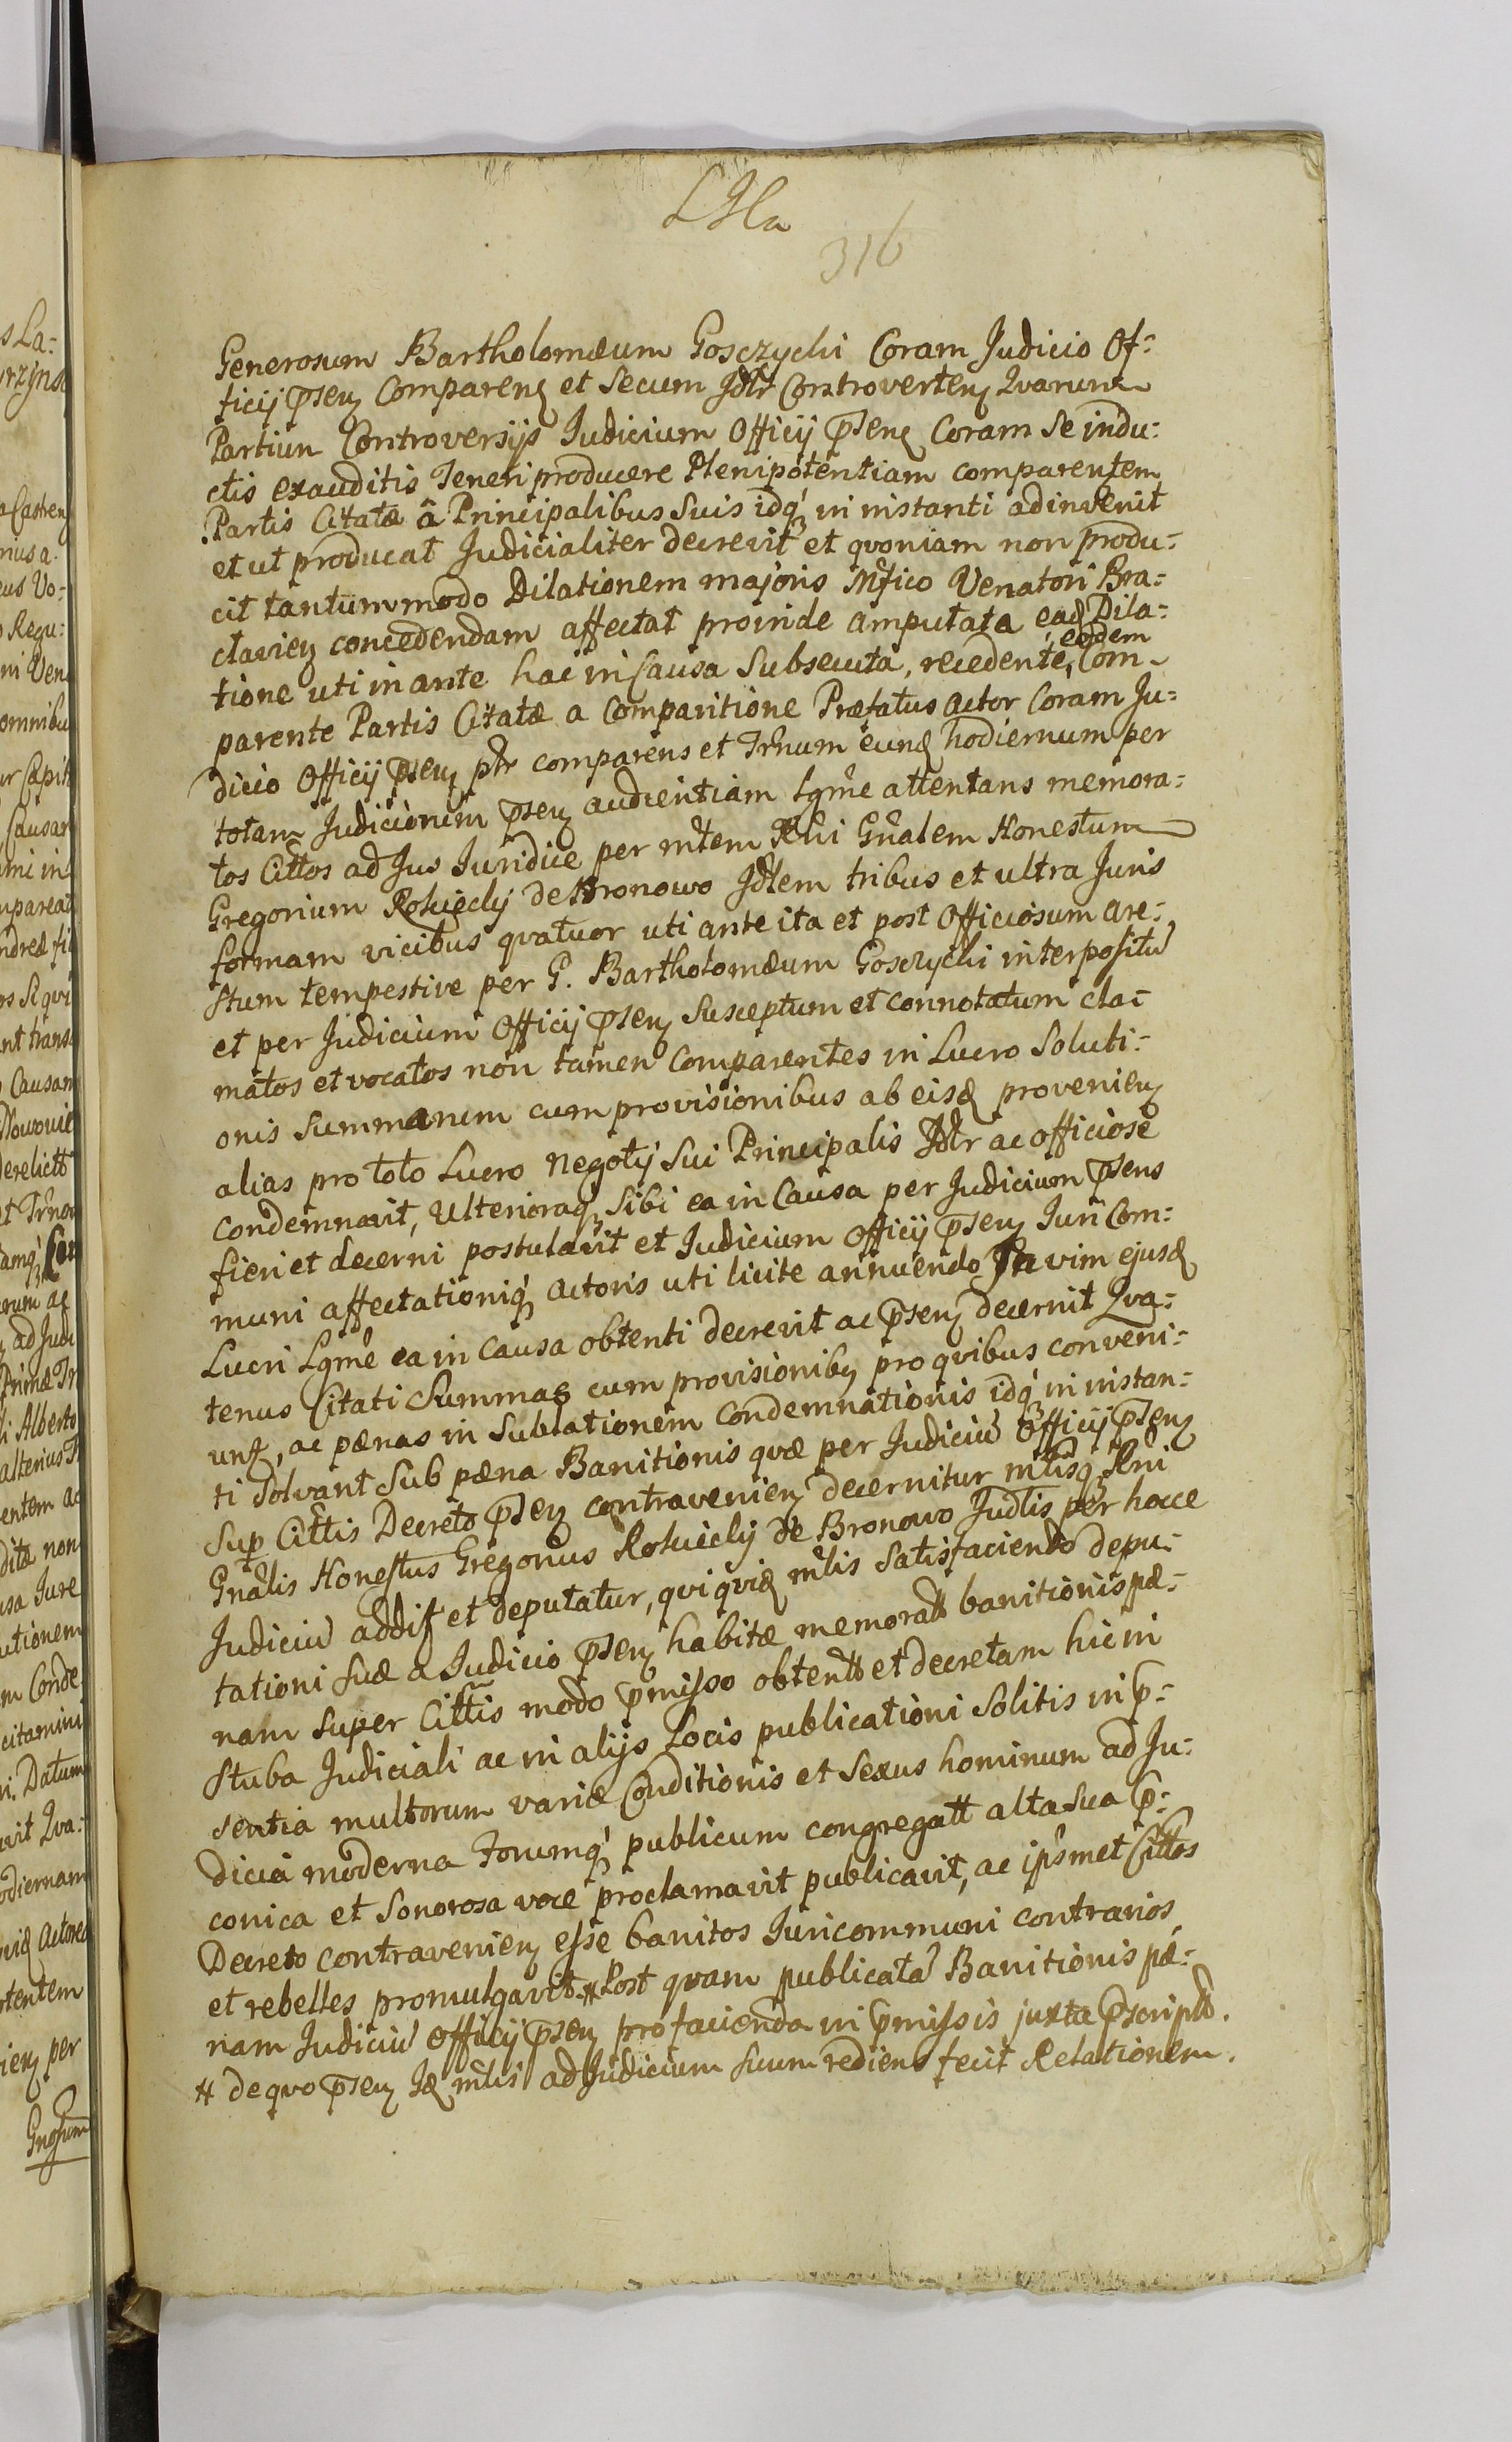 316
Generosum Bartholomæum Gosczycki Coram Judicio Of-
ficij pñsenꝫ Comparenꝫ et Secum Jdtr Controvertenꝫ Qvarum
Partium Controversijs Judicium Officij pñsenꝫ Coram Se indu-
ctis exauditis Teneri producere Plenipotentiam comparentem
Partis Citatæ â Principalibus Suis idqꝫ in instanti adinvenit
et ut producat Judicialiter decrevit et qvoniam non produ-
cit tantummodo Dilationem majoris Mfico Venatori Bra-
clavienꝫ concedendam affectat proinde amputata eadꝫ Dila-
tione uti in ante hac in Causa Subsecuta, recedente eodem Com-
parente Partis Citatæ a Comparitione Præfatus Actor Coram Ju-
dicio Officij pñsenꝫ ptr comparens et Trñum eundꝫ hodiernum per
totam Judiciorum pñsenꝫ audientiam Lgme attentans memora-
tos Cittos ad Jus Juridice per mtem Rhi Gñalem Honestum
Gregorium Rokicky de Bronowo Jdtem tribus et ultra Juris
formam vicibus qvatuor uti ante ita et post Officiosum are-
stum tempestive per G. Bartholomæum Gosczycki interpositũ
et per Judicium Officij pñsenꝫ Susceptum et connotatum cla-
matos et vocatos non tamen Comparentes in Lucro Soluti-
onis Summarum cum provisionibus ab eisdꝫ provenienꝫ
alias pro toto Lucro Negotij Sui Principalis Jdtr ac officiose
condemnavit, Ulterioraqꝫ Sibi ea in Causa per Judicium pñsens
fieri et decerni postulavit et Judicium Officij pñsenꝫ Juri Com-
muni affectationiqꝫ Actoris uti licite annuendo In vim ejusdꝫ
Lucri Lgme ea in Causa obtenti decrevit ac pñsenꝫ decernit Qva-
tenus Citati Summas cum provisionibꝫ pro qvibus conveni-
untr, ac pænas in Sublationem Condemnationis idqꝫ in instan-
ti Solvant Sub pæna Banitionis qvæ per Judiciũ Officij pñsenꝫ
Sup Cittis Decreto pñsenꝫ contravenienꝫ decernitur mtisqꝫ Rhi
Gñalis Honestus Gregorius Rokicky de Bronowo Judtis per hocce
Judiciũ additr et deputatur, qvi qvidꝫ mtis Satisfaciendo depu-
tationi Suæ a Judicio pñsenꝫ habitæ memoratt banitionis pæ-
nam Super Cittis modo pmisso obtentt et decretam hic in
Stuba Judiciali ac in alijs Locis publicationi Solitis in p-
sentia multorum variæ Conditionis et Sexus hominum ad Ju-
dicia moderna Forumqꝫ publicum congregatt alta Sua p-
conica et Sonorosa voce proclamavit publicavit, ac ipsmet Cittos
Decreto contravenienꝫ esse banitos Juri communi contrarios
et rebelles promulgavit # Post qvam publicatã Banitionis pæ-
nam Judiciũ Officij pñsenꝫ pro facienda in pmissis juxta pscriptt.
# de qvo pñsenꝫ Jdꝫ mtis ad Judicium Suum rediens fecit Relationem.